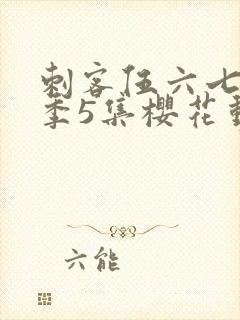 刺客伍六七
季5集樱花
六能